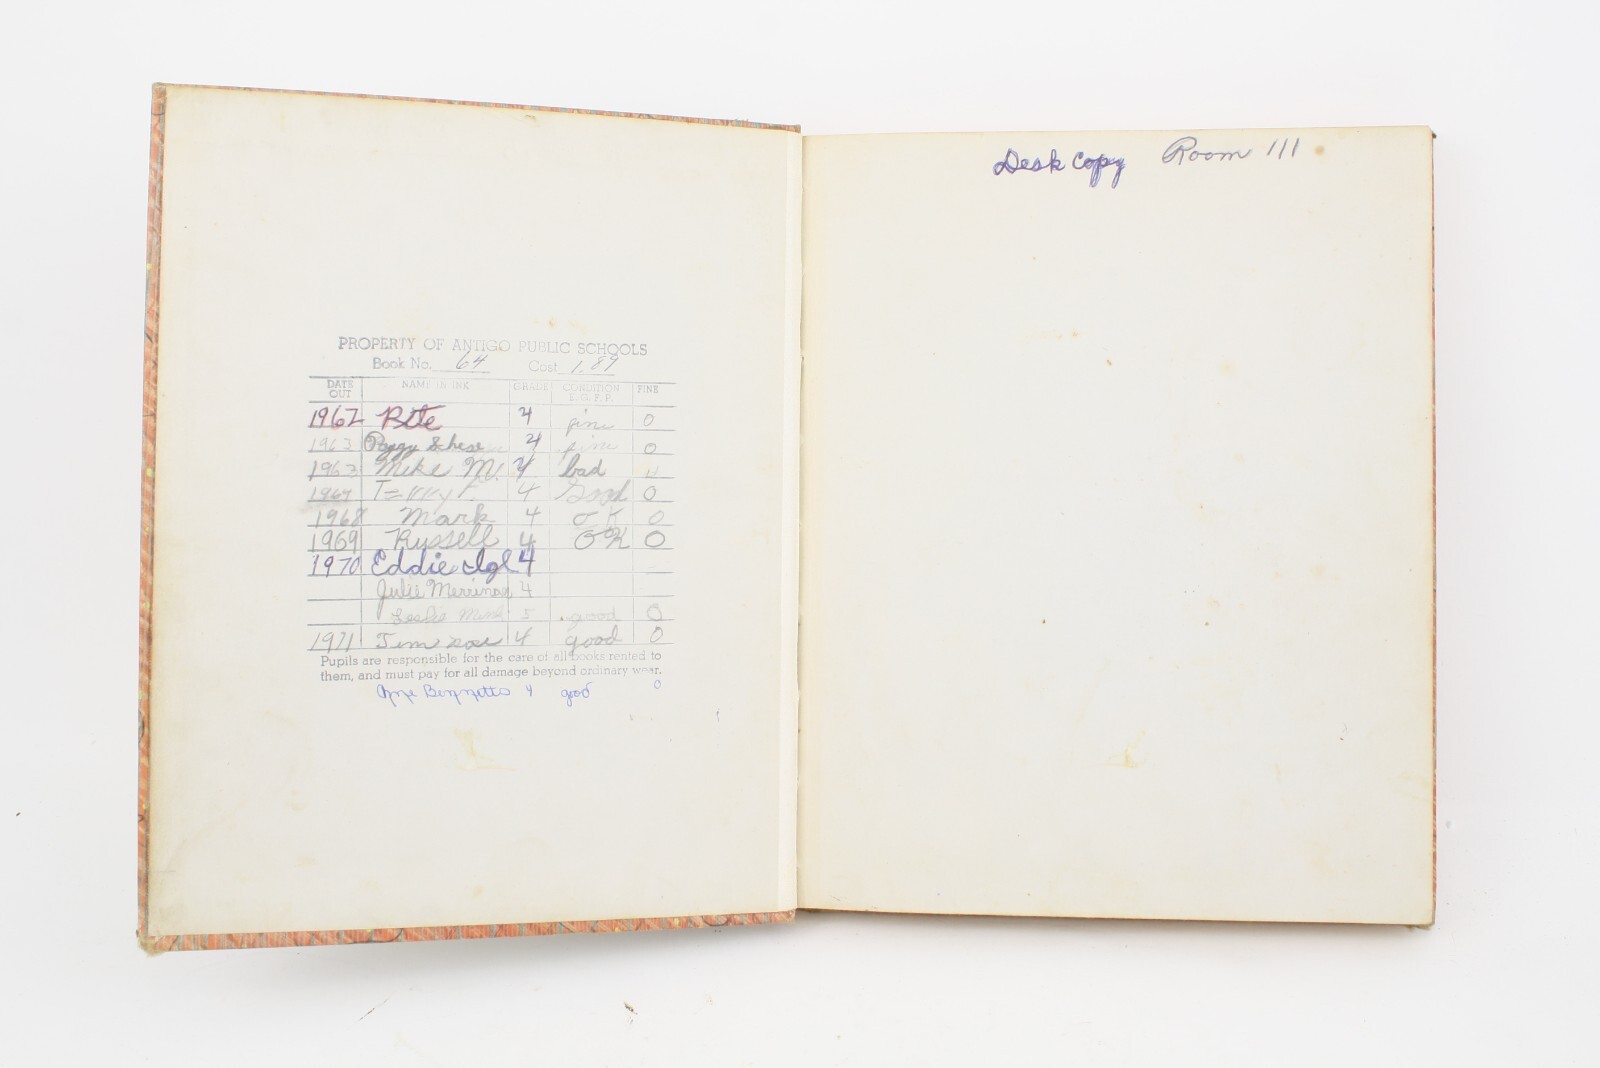 PROPERTY OF ANTIGO PUBLIC SCHOOLS
Book No. 64 Cost 1.89
DATE OUT NAME IN INK GRADE CONDITION E. G. F. P. FINE
1962 4 fine 0
1963 Peggy 4 fine 0
1963 Mike M. 4 bad
1964 Terry 4 Good 0
1968 Mark 4 OK 0
1969 Russell 4 OK 0
1970 Eddie 4
Julie 4
Leslie 5 good 0
1971 Tim 4 good 0
Pupils are responsible for the care of all books rented to
them, and must pay for all damage beyond ordinary wear.
4 good 0
Desk Copy Room 111